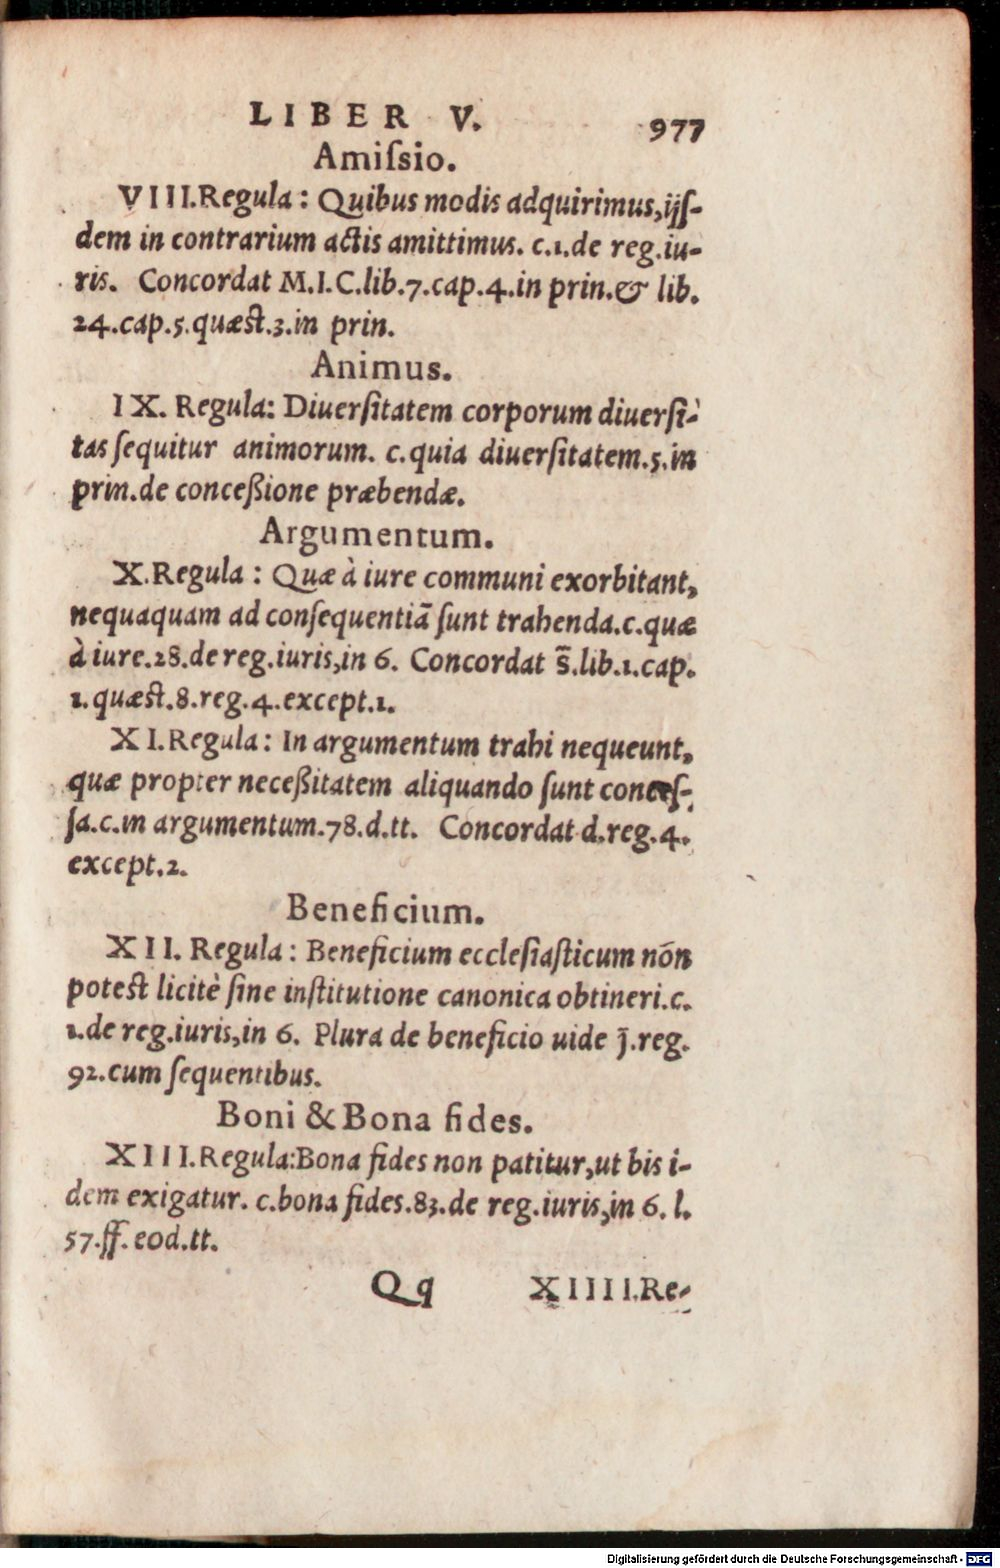 LIBER V. 977
Amiſsio.
VIII.Regula: Quibus modis adquirimus,ijſ-
dem in contrarium actis amittimus. c.1.de reg.iu-
ris. Concordat M.I.C.lib.7.cap.4.in prin.& lib.
24.cap.5.quæst.3.in prin.
Animus.
IX. Regula: Diuerſitatem corporum diuerſi-
tas ſequitur animorum. c.quia diuerſitatem.5.in
prin.de conceßione præbendæ.
Argumentum.
X.Regula: Quæ à iure communi exorbitant,
nequaquam ad conſequentiā ſunt trahenda.c.quæ
à iure.28.de reg.iuris,in 6. Concordat s̄.lib.1.cap.
1.quæst.8.reg.4.except.1.
XI.Regula: In argumentum trahi nequeunt,
quæ propter neceßitatem aliquando ſunt conceſ-
ſa.c.in argumentum.78.d.tt. Concordat d.reg.4.
except.2.
Beneficium.
XII. Regula: Beneficium eccleſiaſticum nō̄n
potest licitè ſine inſtitutione canonica obtineri.c.
1.de reg.iuris,in 6. Plura de beneficio uide j̄.reg.
92.cum ſequentibus.
Boni & Bona fides.
XIII.Regula:Bona fides non patitur,ut bis i-
dem exigatur. c.bona fides.83.de reg.iuris,in 6. l.
57.ff. eod.tt.
Qq XIIII.Re-
Digitalisierung gefördert durch die Deutsche Forschungsgemeinschaft - DFG